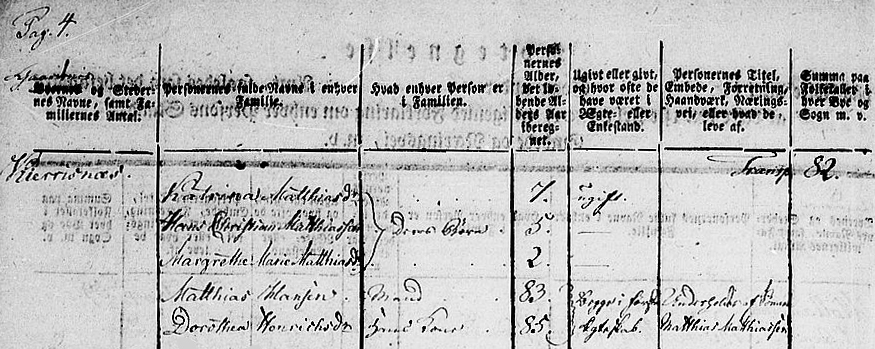 Pag. 4.
Gaardenes
Byernes og Stedernes Navne, samt Familiernes Antal.
Personernes fulde Navne i enhver Familie.
Hvad enhver Person er i Familien.
Personernes Alder, det løbende Alders Aar iberegnet.
Ugivt eller givt, og hvor ofte de have været i Ægte- eller Enkestand.
Personernes Titel, Embede, Forretning, Haandværk, Næringsvei, eller hvad de leve af.
Summa paa Folketallet i hver Bye og Sogn m. v.
Kierrisnæs. Transp. 82.
Katrina Matthiasdr 7. ugift.
Hans Christian Matthiassen Deres Børn 5. —
Margrethe Marie Matthiasdr 2. —
Matthias Hansen Mand 83. Begge i første Underholdes af Sønnen
Dorothea Henrichsdr hans Kone 85. Egteskab. Matthias Matthiassen